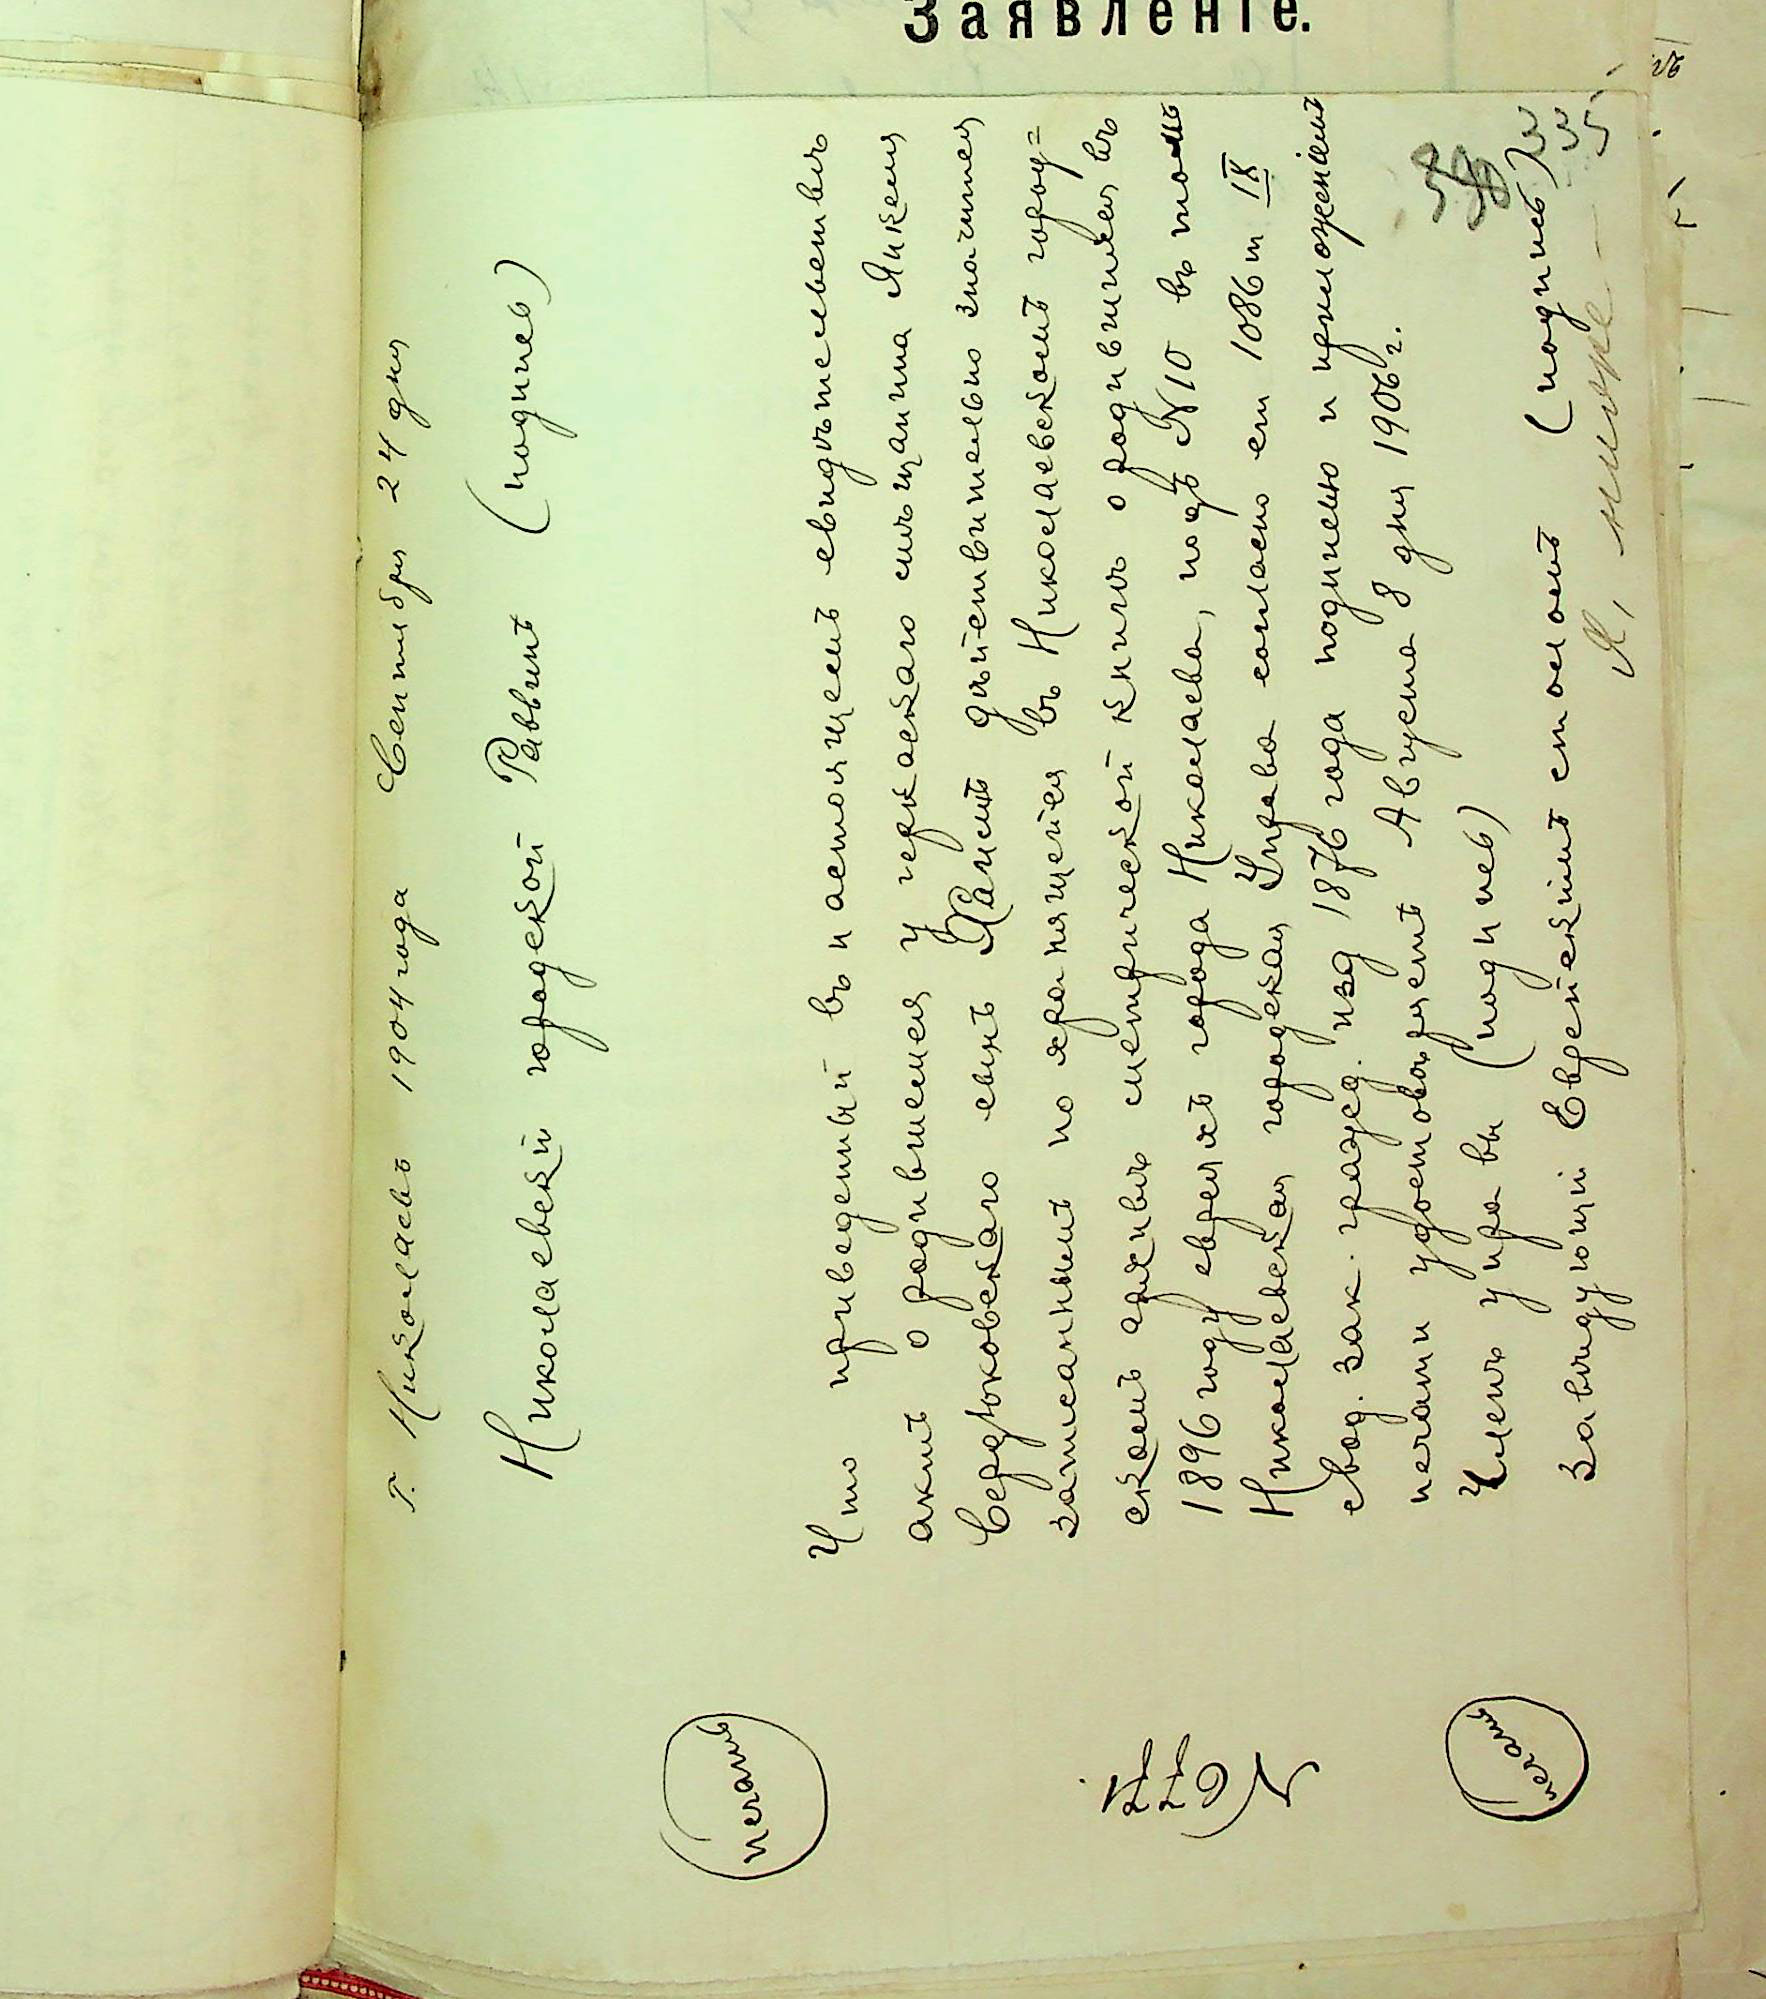 Заявленіе.
г. Николаевъ 1904 года Сентября 24 дня
Николаевскій городской Раввинъ (подпись)
Что приведенный въ настоящемъ свидѣтельствѣ
актъ о родившемся у черкаскаго мѣщанина Янкеля
Сердюковскаго сынъ Хаимъ дѣйствительно значится
записаннымъ по хранящейся въ Николаевскомъ город=
скомъ архивѣ метрической книгѣ о родившихся въ
1896 году евреяхъ города Николаева, подъ №10 въ томъ
Николаевская городская Управа согласно ст 1086 т IX
свод. зак. гражд. изд 1876 года подписью и приложеніемъ
печати удостовѣряетъ Августа 8 дня 1906 г.
Членъ управы (подпись)
Завѣдующій Еврейскимъ столомъ (подпись)
печать
печать
335
Я,